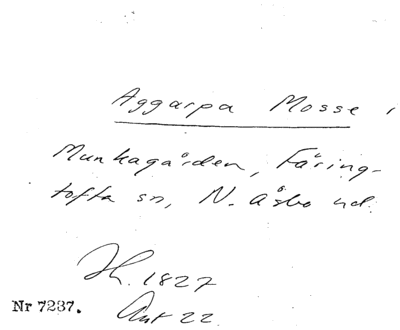 Aggarpa Mosse,
Munkagården, Färing-
tofta sn, N. Åsbo hd.
Jh. 1827
Ant 22
Nr 7237.